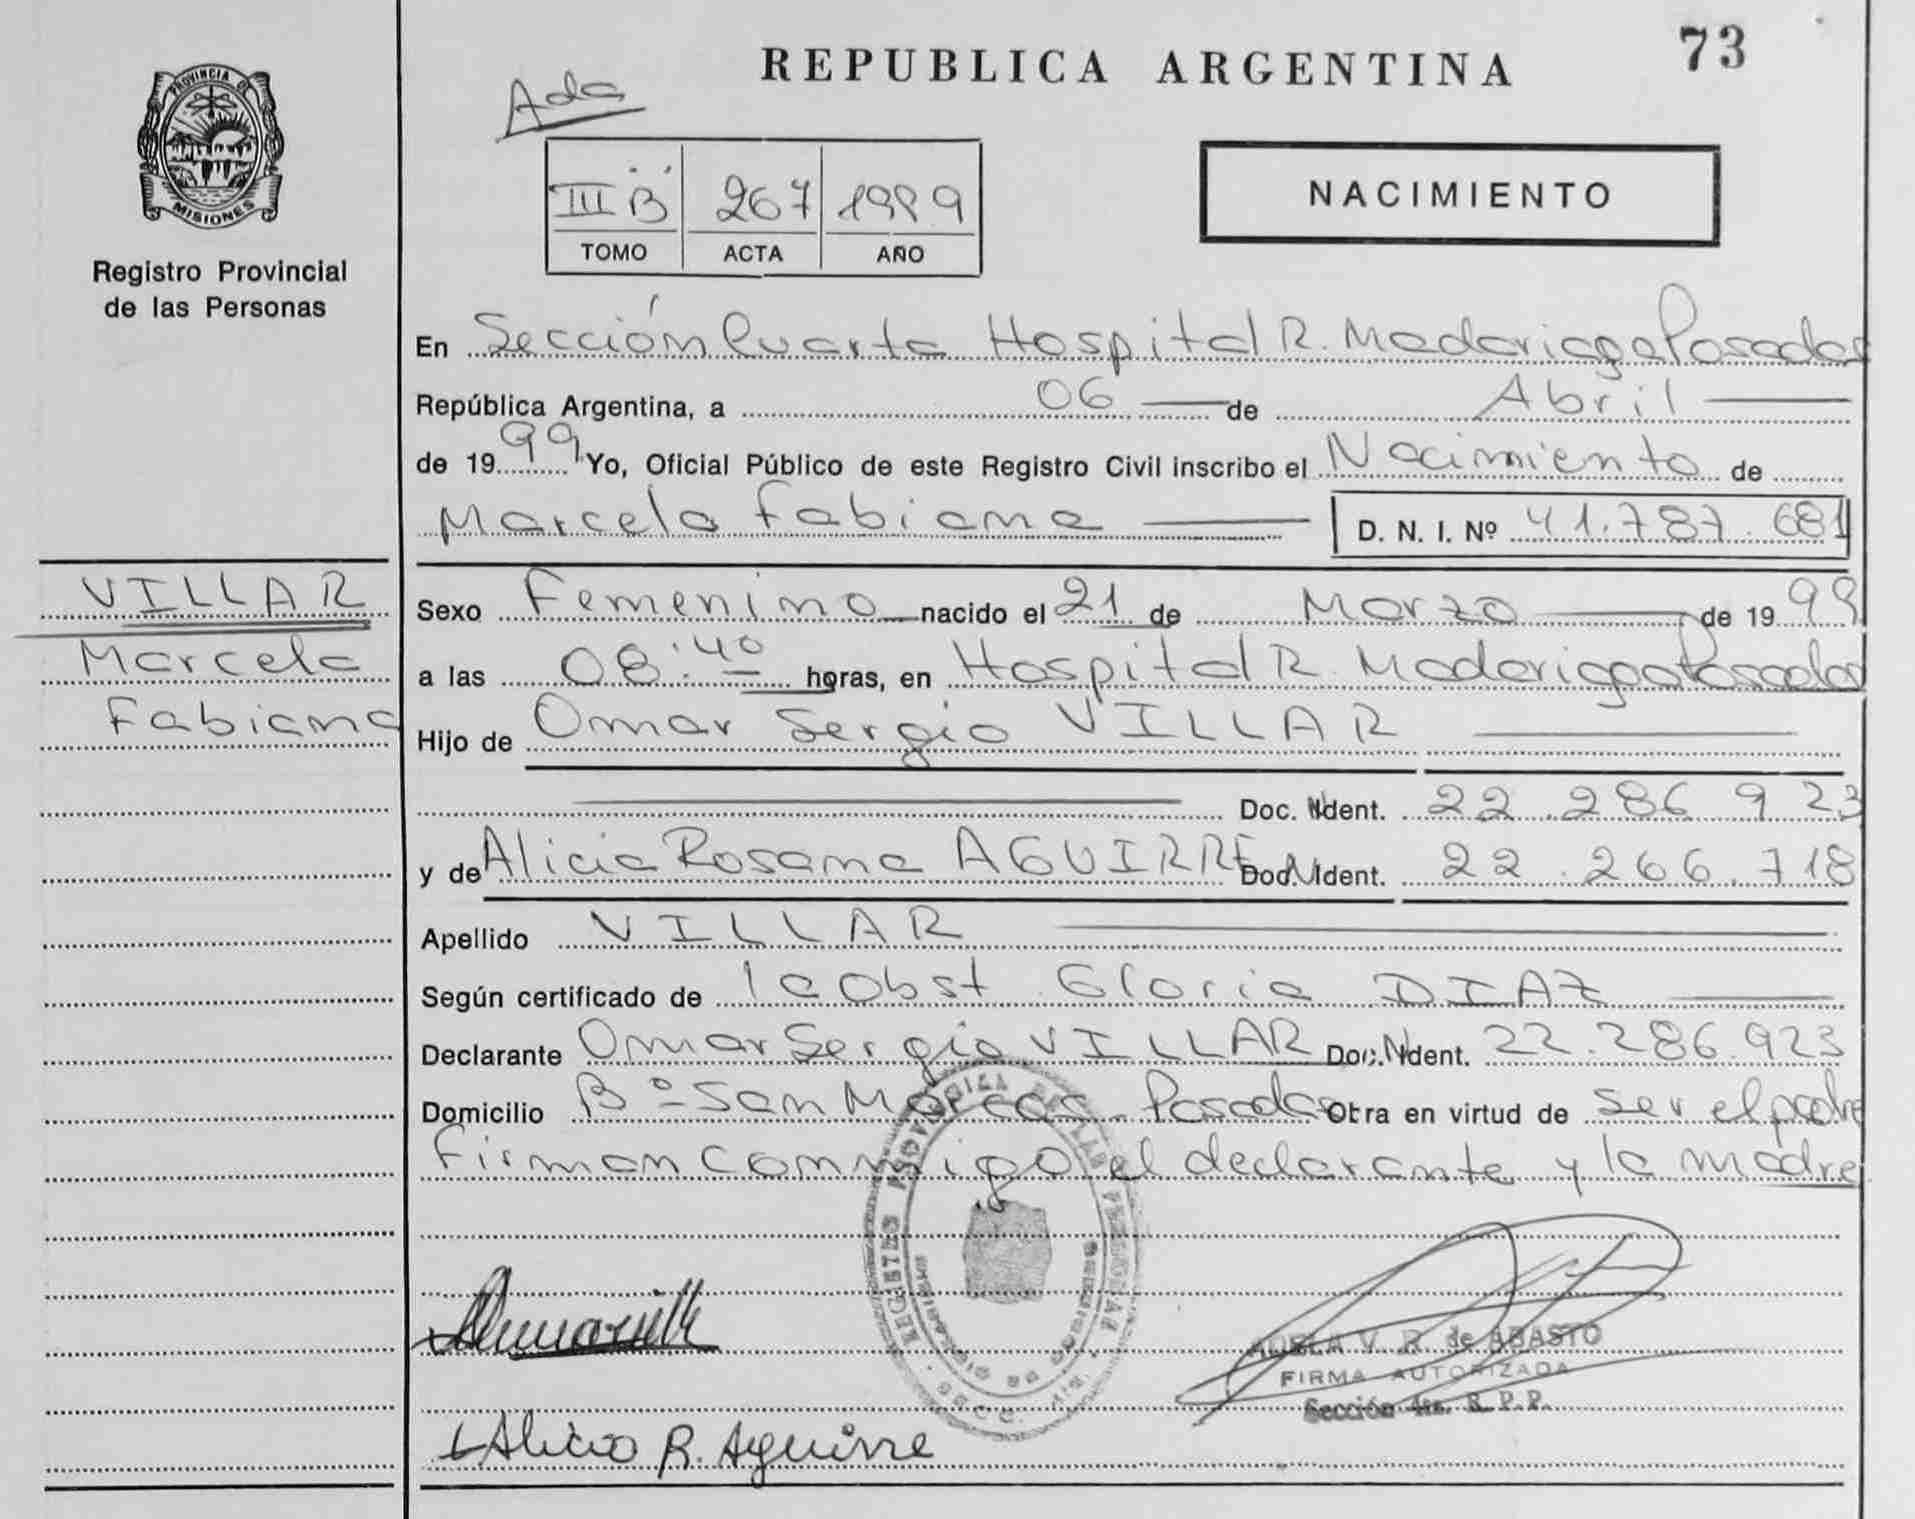 73
REPUBLICA ARGENTINA
Ada
PROVINCIA DE
MISIONES
Registro Provincial
de las Personas
III "B" 267 1999
TOMO ACTA AÑO
NACIMIENTO
En Sección Cuarta Hospital R. Madariaga Posadas
República Argentina, a 06 de Abril
de 1999 Yo, Oficial Público de este Registro Civil inscribo el Nacimiento de
Marcela Fabiana D. N. I. Nº 41.787.681
VILLAR
Marcela
Fabiana
Sexo Femenino nacido el 21 de Marzo de 1999
a las 08:40 horas, en Hospital R. Madariaga Posadas
Hijo de Omar Sergio VILLAR
Doc. Ident. 22.286.923
y de Alicia Rosana AGUIRRE Doc. Ident. 22.266.718
Apellido VILLAR
Según certificado de la Obst Gloria DIAZ
Declarante Omar Sergio VILLAR Doc. Ident. 22.286.923
Domicilio Bº San Marcos Posadas Obra en virtud de ser el padre
Firman conmigo el declarante y la madre
REGISTRO PROVINCIAL DE LAS PERSONAS
ADELA V. R. de ABASTO
FIRMA AUTORIZADA
Sección 4ta. R. P. P.
Alicia R. Aguirre